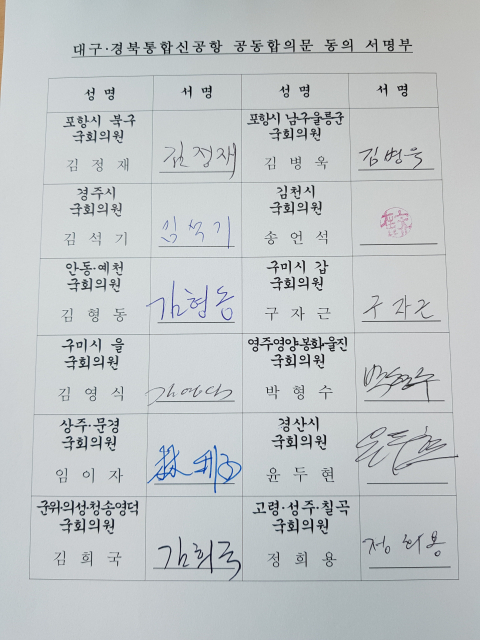 대구·경북통합신공항 공동합의문 동의 서명부
성 명 서 명 성 명 서 명
포항시 북구 포항시 남구울릉군
국회의원 국회의원
김 정 재 김정재 김 병 욱 김병욱
경주시 김천시
국회의원 국회의원
김 석 기 김석기 송 언 석
안동·예천 구미시 갑
국회의원 국회의원
김 형 동 김형동 구 자 근 구자근
구미시 을 영주영양·봉화·울진
국회의원 국회의원
김 영 식 김영식 박 형 수 박형수
상주·문경 경산시
국회의원 국회의원
임 이 자 윤 두 현 윤두현
군위의성·청송영덕 고령·성주·칠곡
국회의원 국회의원
김 희 국 김희국 정 희 용 정희용